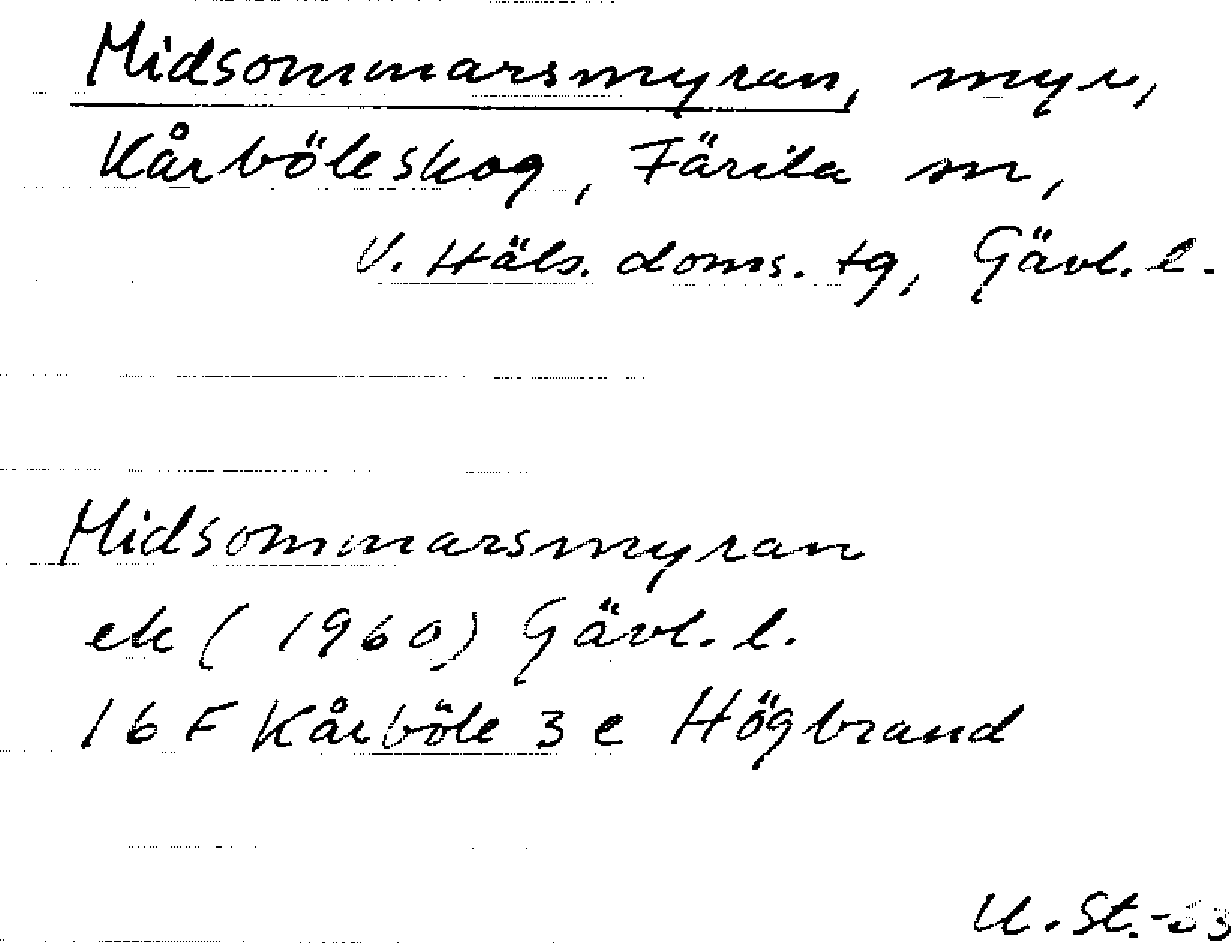 Midsommarsmyran, myr,
Kårböleskog, Färila sn,
V. Häls. doms. tg, Gävl. l.
Midsommarsmyran
ek (1960) Gävl. l.
16 F Kårböle 3 e Högbrand
U. St.